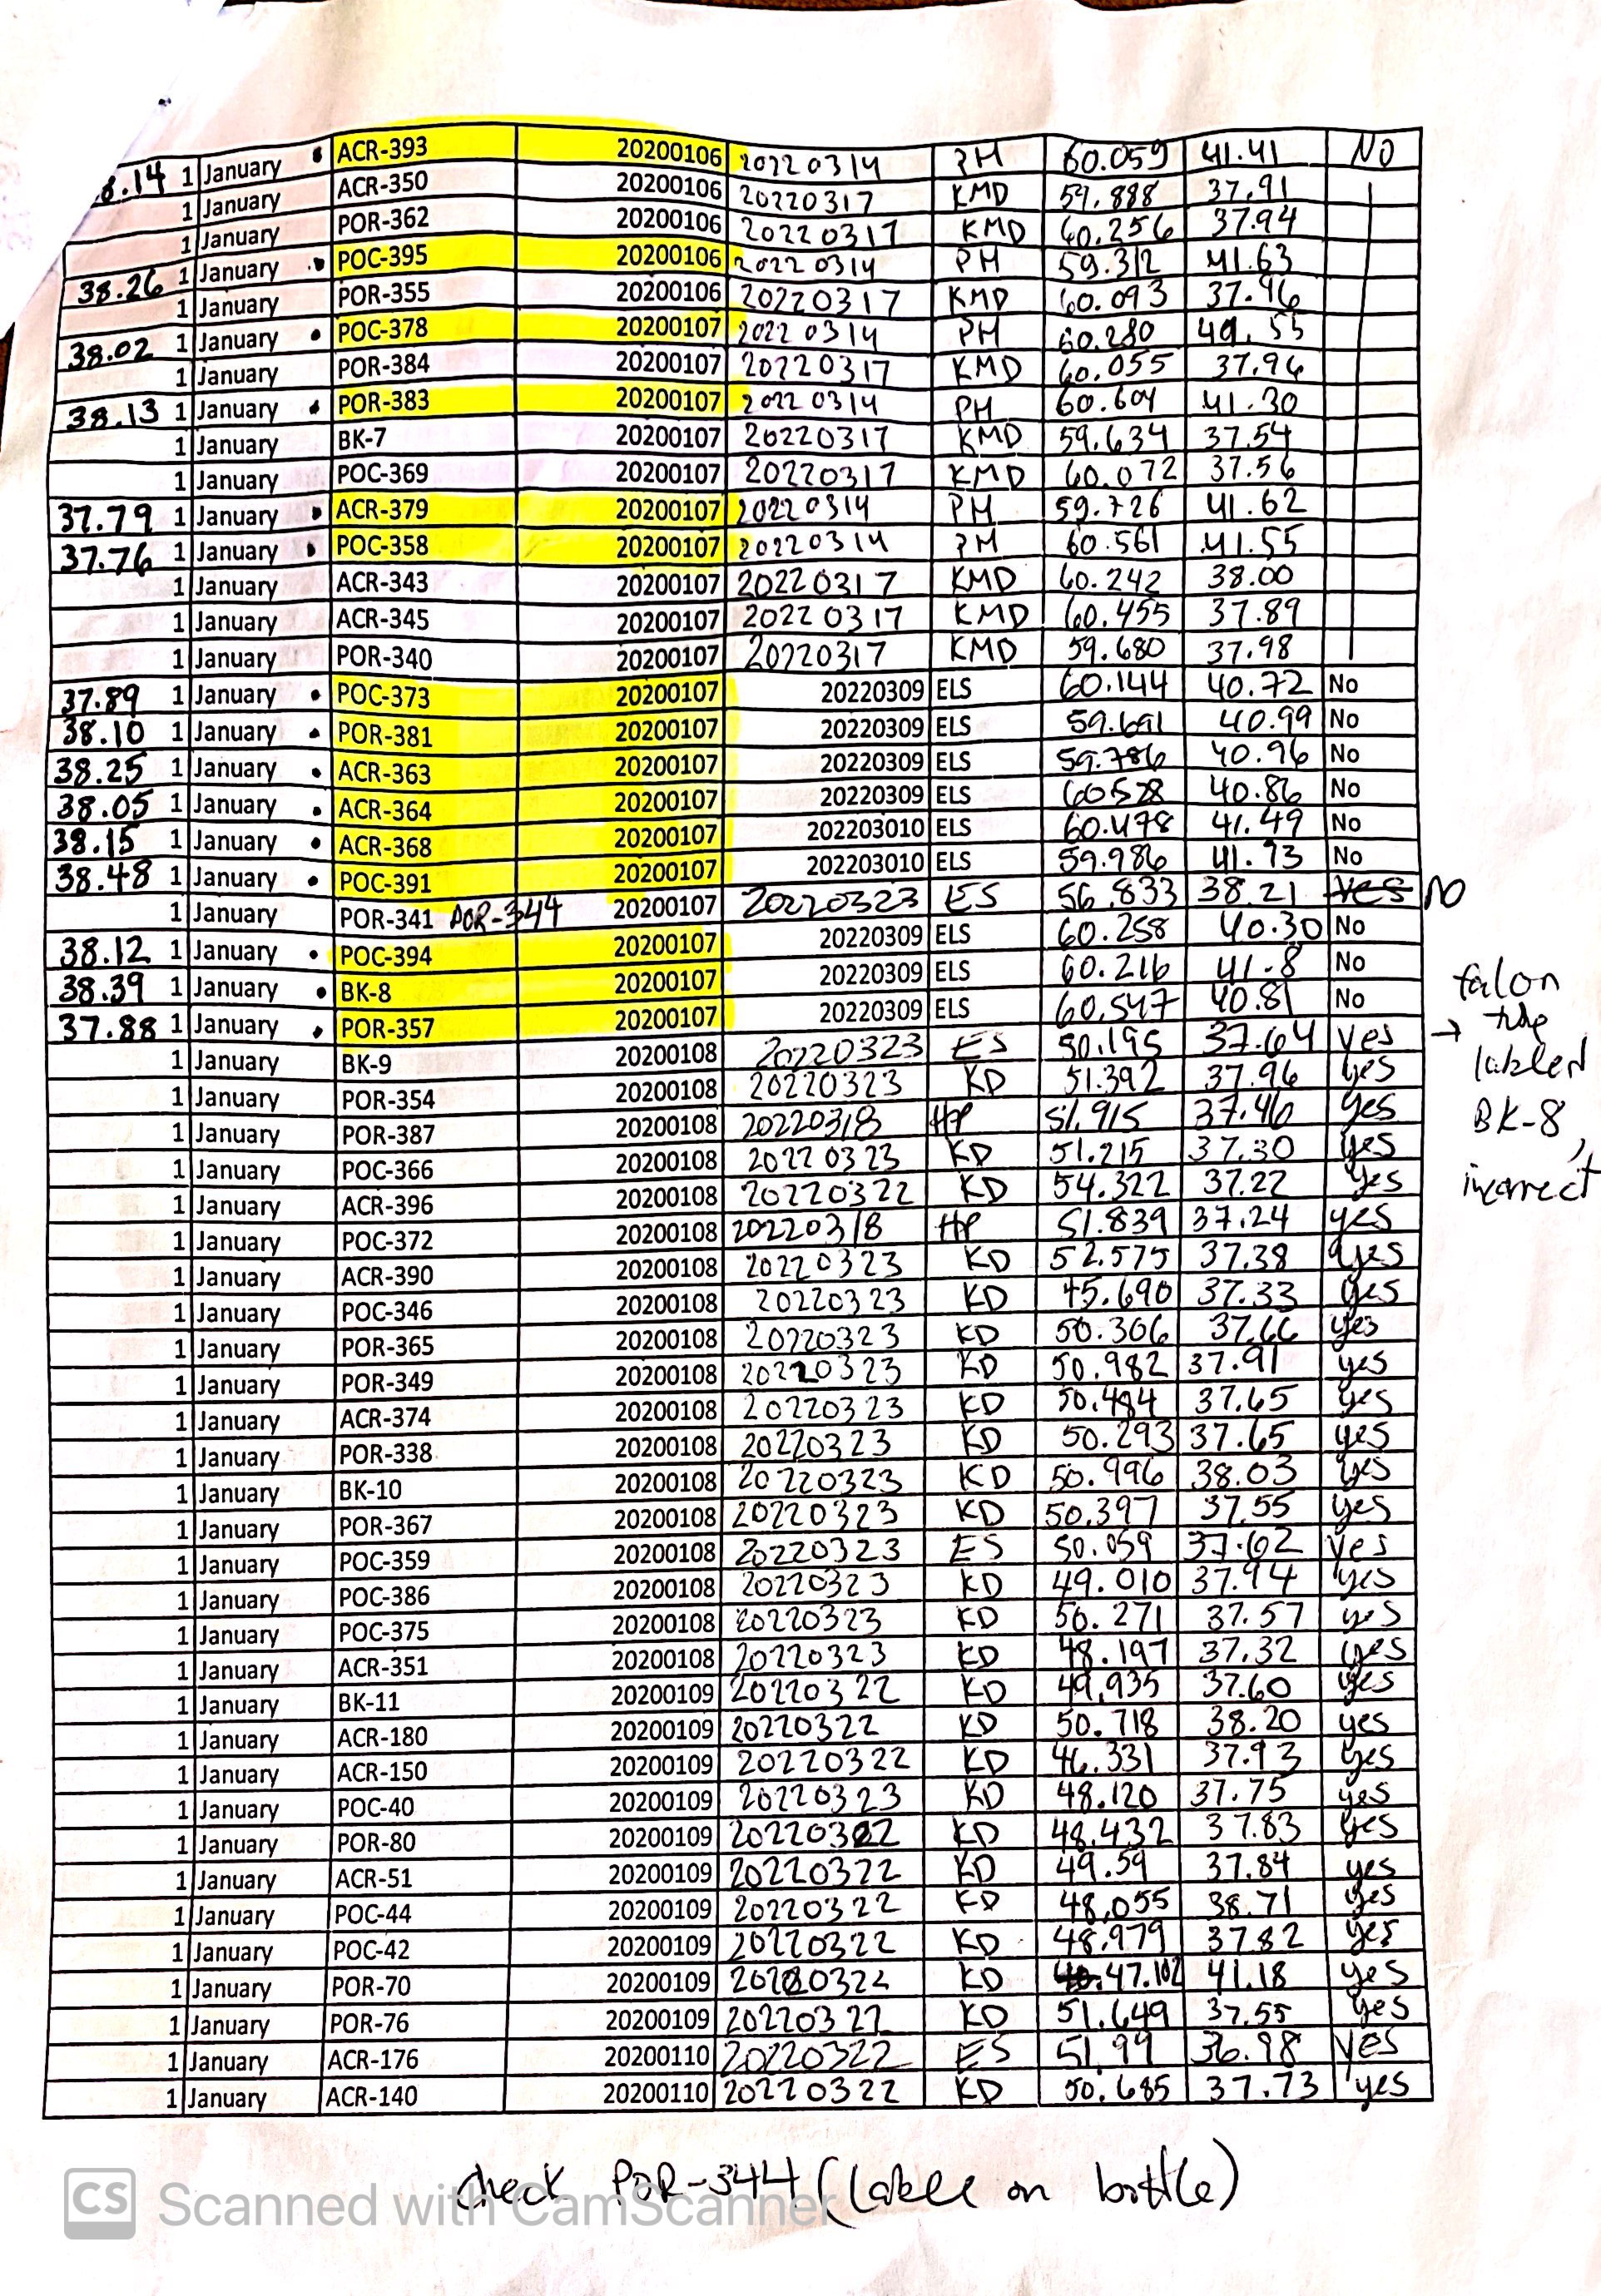 8.14 1 January • ACR-393 20200106 20220314 PH 60.059 41.41 No
1 January ACR-350 20200106 20220317 KMD 59.888 37.91
1 January POR-362 20200106 20220317 KMD 60.256 37.94
38.26 1 January • POC-395 20200106 20220314 PH 59.312 41.63
1 January POR-355 20200106 20220317 KMD 60.093 37.96
38.02 1 January • POC-378 20200107 20220314 PH 60.280
1 January POR-384 20200107 20220317 KMD 60.055 37.96
38.13 1 January • POR-383 20200107 20220314 PH 60.604 41.30
1 January BK-7 20200107 20220317 KMD 59.634 37.54
1 January POC-369 20200107 20220317 KMD 60.072 37.56
37.79 1 January • ACR-379 20200107 20220314 PH 59.726 41.62
37.76 1 January • POC-358 20200107 20220314 PH 60.561 41.55
1 January ACR-343 20200107 20220317 KMD 60.242 38.00
1 January ACR-345 20200107 20220317 KMD 60.455 37.89
1 January POR-340 20200107 20220317 KMD 59.680 37.98
37.89 1 January • POC-373 20200107 20220309 ELS 60.144 40.72 No
38.10 1 January • POR-381 20200107 20220309 ELS 59.691 40.99 No
38.25 1 January • ACR-363 20200107 20220309 ELS 59.786 40.96 No
38.05 1 January • ACR-364 20200107 20220309 ELS 60.528 40.86 No
38.15 1 January • ACR-368 20200107 202203010 ELS 60.478 41.49 No
38.48 1 January • POC-391 20200107 202203010 ELS 59.986 41.73 No
1 January POR-341 POR-344 20200107 20220323 ES 56.833 38.21 Yes NO
38.12 1 January • POC-394 20200107 20220309 ELS 60.258 40.30 No
38.39 1 January • BK-8 20200107 20220309 ELS 60.216 41.8 No
37.88 1 January • POR-357 20200107 20220309 ELS 60.547 40.81 No
1 January BK-9 20200108 20220323 ES 50.195 37.64 Yes → falon tube labled BK-8, incorrect
1 January POR-354 20200108 20220323 KD 51.392 37.96 Yes
1 January POR-387 20200108 20220318 HP 51.915 37.46 yes
1 January POC-366 20200108 20220323 KD 51.215 37.30 yes
1 January ACR-396 20200108 20220322 KD 54.322 37.22 yes
1 January POC-372 20200108 20220318 HP 51.839 37.24 yes
1 January ACR-390 20200108 20220323 KD 52.575 37.38 yes
1 January POC-346 20200108 20220323 KD 45.690 37.33 yes
1 January POR-365 20200108 20220323 KD 50.306 37.66 yes
1 January POR-349 20200108 20220323 KD 50.982 37.91 yes
1 January ACR-374 20200108 20220323 KD 50.494 37.65 yes
1 January POR-338 20200108 20220323 KD 50.293 37.65 yes
1 January BK-10 20200108 20220323 KD 50.996 38.03 yes
1 January POR-367 20200108 20220323 KD 50.397 37.55 yes
1 January POC-359 20200108 20220323 ES 50.059 37.62 Yes
1 January POC-386 20200108 20220323 KD 49.010 37.94 yes
1 January POC-375 20200108 20220323 KD 50.271 37.57 yes
1 January ACR-351 20200108 20220323 KD 48.197 37.32 yes
1 January BK-11 20200109 20220322 KD 49.935 37.60 yes
1 January ACR-180 20200109 20220322 KD 50.718 38.20 yes
1 January ACR-150 20200109 20220322 KD 46.331 37.93 yes
1 January POC-40 20200109 20220323 KD 48.120 37.75 yes
1 January POR-80 20200109 20220322 KD 48.432 37.83 yes
1 January ACR-51 20200109 20220322 KD 49.59 37.84 yes
1 January POC-44 20200109 20220322 KD 48.055 38.71 yes
1 January POC-42 20200109 20220322 KD 48.979 37.82 yes
1 January POR-70 20200109 20220322 KD 47.102 41.18 yes
1 January POR-76 20200109 20220322 KD 51.649 37.55 yes
1 January ACR-176 20200110 20220322 ES 51.99 36.98 Yes
1 January ACR-140 20200110 20220322 KD 50.685 37.73 yes
check POR-344 (lablel on bottle)
CS Scanned with CamScanner